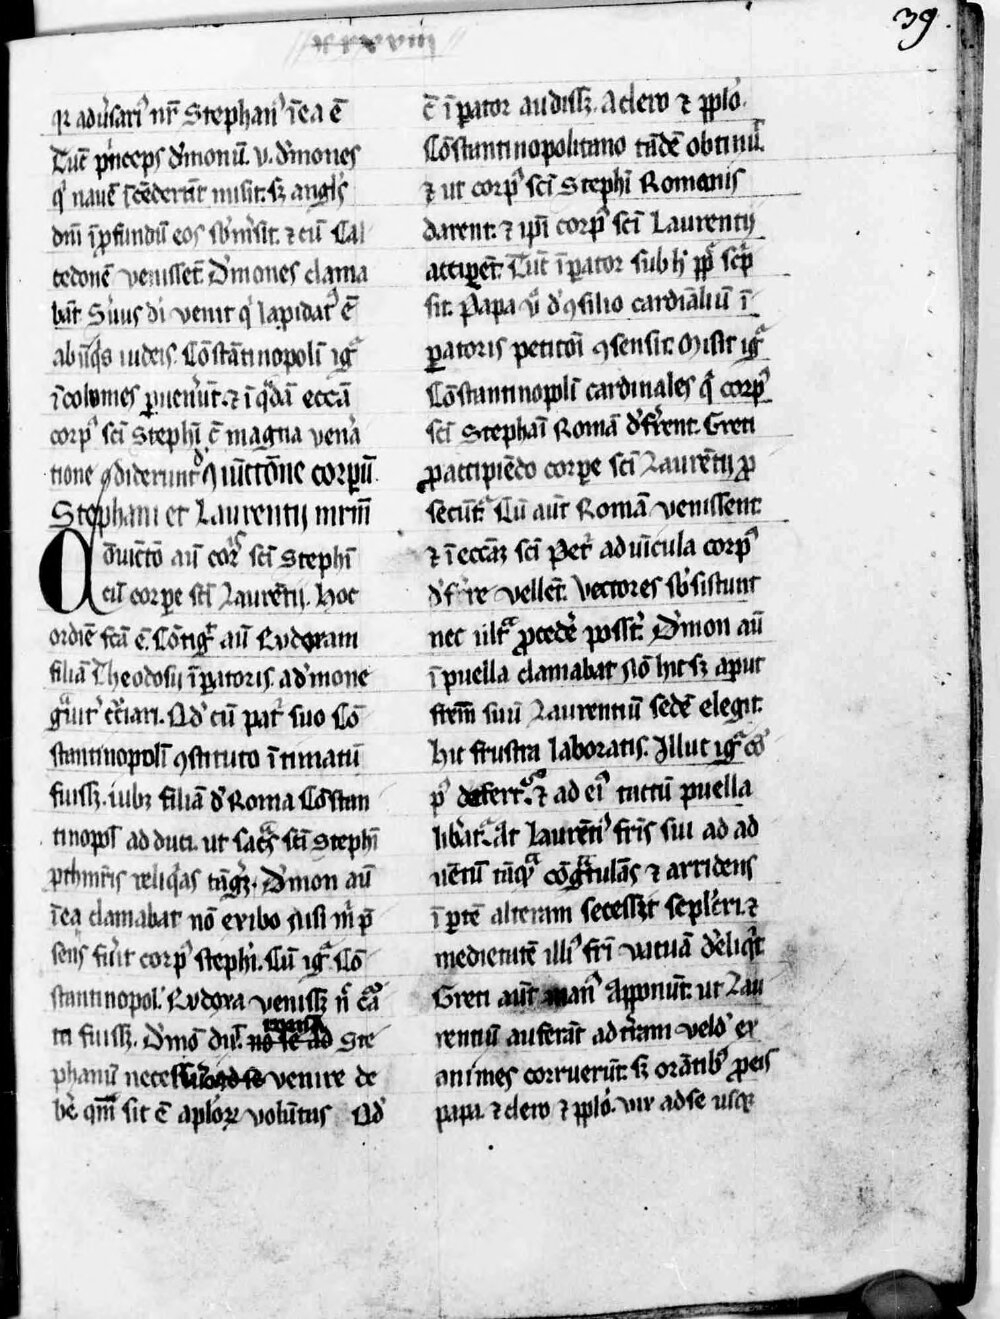 39.
xxxviii
qr adu̾sari᾽ nr̄ Stephan᾽ ī ea ē
Tūc p̾nceps d̾monū. v. d̾mones
q᾽ nauē īcēderēt misit. sꝫ angl̾s
dn̄i ī ꝓfundū eos sb̾m̾sit. ⁊ cū Cal
cedonē venisset. D̾mones clama
bāt S̾uus di venit q᾽ lapidat᾽ ē
ab iniq̾s iudeis. Cōstātinopolī ig̾
īcolomes ꝑuen̾ūt. ⁊ ī q̾dā ecc̄a
corp᾽ sc̄i Stephī c̄ magna ven̾a
tione ꝯdiderunt. d᾽ ꝯiūctōne corpūꝫ
Stephani et Laurentij mr̄m
Q d̾ uicto aū cor᾽ sc̄i Stephī
cū corpe sc̄i Laurētij. Hoc
ordiē fc̄a ē. Cōtigᷓ aū Eudoxam
filiā Theodosij īꝑatoris. a d̾mone
g̾uit̾ c̄ciari. Qd̾ cū pat̾ suo Cō
stantinopolī ꝯstituto ītimatū
fuissꝫ. iubꝫ filiā d̾ Roma Cōstan
tinopol̄ ad duci. ut sac̾s sc̄i Stephī
pthm̄r̄is reliq̾as tāgꝫ. D̾mon aū
ī ea clamabat nō exibo nisi m̾ p̄
sens fu̾it corp᾽ stephī. Cū igᷓ Cō
stantinopol̾ Eudoxa venissꝫ n̄ cᷓa
ta fuissꝫ. D̾mō dix̾.  Ste
phanū  venire de
bē. qm̄ sit ē aploꝝ volūtas Qd̾
c̄ īꝑator audissꝫ. A clero ⁊ pp̄lo.
Cōstantinopolitano tādē obtinu᷑.
⁊ ut corp᾽ sc̄i Stephī Romanis
darent. ⁊ ip̄i corp᾽ sc̄i Laurentij
accipet. Tūc īꝑator sub h̾ pp̄ sc̾p
sit. Papa v̾ d̾ ꝯsilio cardināliū ī
ꝑatoris petitōī ꝯsensit. Misit igᷓ
Cōstantinopolī cardinales qᷓ corp᾽
sc̄i Stephanī Romā d̾fr̾ent. Greci
ꝓ accipiēdo corpe sc̄i Laurētij ꝓ
secūtᷓ. Cū aūt Romā venissent.
⁊ ī ecc̄aꝫ sc̄i Pet̾ ad uīcula corp᾽
d̾f̾re vellēt. Vectores sb̾sistunt
nec ultᷓ ꝓcede̾ possūt. D̾mon aū
ī puella clamabat nō hic sꝫ aput
frēm suū Laurentiū sedē elegit.
hic frustra laboratis. Illuc igᷓ co᾽
p᾽ defertᷓ. ⁊ ad ei᾽ tactū puella
lib̾atᷓ. At Laurēti᾽ fr̄is sui ad ad
uētū tāq̃ᷓ cōgᷓtulās ⁊ arridens
ī ꝑtē alteram secessꝫt sepl̾cri. ⁊
medietatē illi᾽ frī vacuā d̾eliq̾t
Greci aūt man᾽ apponūt. ut Lau
rentiū auferāt ad trā̄m veld᾽ ex
animes corruerūt. sꝫ orātib᾽ ꝓ eis
papa. ⁊ clero ⁊ pp̄lo. vix ad se usqꝫ